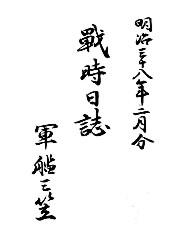 明治三十八年二月分
戰時日誌
軍艦三笠